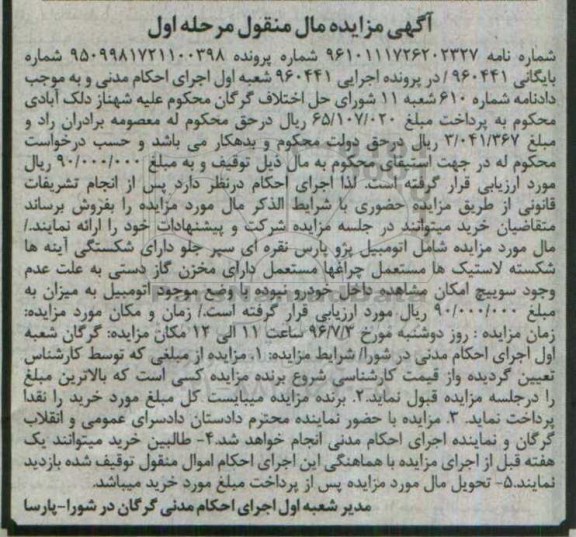 آگهی مزایده مال منقول مرحله اول
شماره نامه ۹۶۱۰۱۱۱۷۲۶۲۰۲۳۲۷ شماره پرونده ۹۵۰۹۹۸۱۷۲۱۱۰۰۳۹۸ شماره
بایگانی ۹۶۰۴۴۱ / در پرونده اجرایی ۹۶۰۴۴۱ شعبه اول اجرای احکام مدنی و به موجب
دادنامه شماره ۶۱۰ شعبه ۱۱ شورای حل اختلاف گرگان محکوم علیه شهناز دلک آبادی
محکوم به پرداخت مبلغ ۶۵/۱۰۷/۰۲۰ ریال درحق محکوم له معصومه برادران راد و
مبلغ ۳/۰۴۱/۳۶۷ ریال درحق دولت محکوم و بدهکار می باشد و حسب درخواست
محکوم له در جهت استیفای محکوم به مال ذیل توقیف و به مبلغ ۹۰/۰۰۰/۰۰۰ ریال
مورد ارزیابی قرار گرفته است. لذا اجرای احکام درنظر دارد پس از انجام تشریفات
قانونی از طریق مزایده حضوری با شرایط الذکر مال مورد مزایده را بفروش برساند
متقاضیان خرید میتوانند در جلسه مزایده شرکت و پیشنهادات خود را ارائه نمایند./
مال مورد مزایده شامل اتومبیل پژو پارس نقره ای سپر جلو دارای شکستگی آینه ها
شکسته لاستیک ها مستعمل چراغها مستعمل دارای مخزن گاز دستی به علت عدم
وجود سوییچ امکان مشاهده داخل خودرو نبوده با وضع موجود اتومبیل به میزان به
مبلغ ۹۰/۰۰۰/۰۰۰ ریال مورد ارزیابی قرار گرفته است./ زمان و مکان مورد مزایده:
زمان مزایده : روز دوشنبه مورخ ۹۶/۷/۳ ساعت ۱۱ الی ۱۲ مکان مزایده: گرگان شعبه
اول اجرای احکام مدنی در شورا/ شرایط مزایده: ۱. مزایده از مبلغی که توسط کارشناس
تعیین گردیده واز قیمت کارشناسی شروع برنده مزایده کسی است که بالاترین مبلغ
را درجلسه مزایده قبول نماید.۲. برنده مزایده میبایست کل مبلغ مورد خرید را نقدا
پرداخت نماید. ۳. مزایده با حضور نماینده محترم دادستان دادسرای عمومی و انقلاب
گرگان و نماینده اجرای احکام مدنی انجام خواهد شد.۴- طالبین خرید میتوانند یک
هفته قبل از اجرای مزایده با هماهنگی این اجرای احکام اموال منقول توقیف شده بازدید
نمایند.۵- تحویل مال مورد مزایده پس از پرداخت مبلغ مورد خرید میباشد.
مدیر شعبه اول اجرای احکام مدنی گرگان در شورا-پارسا